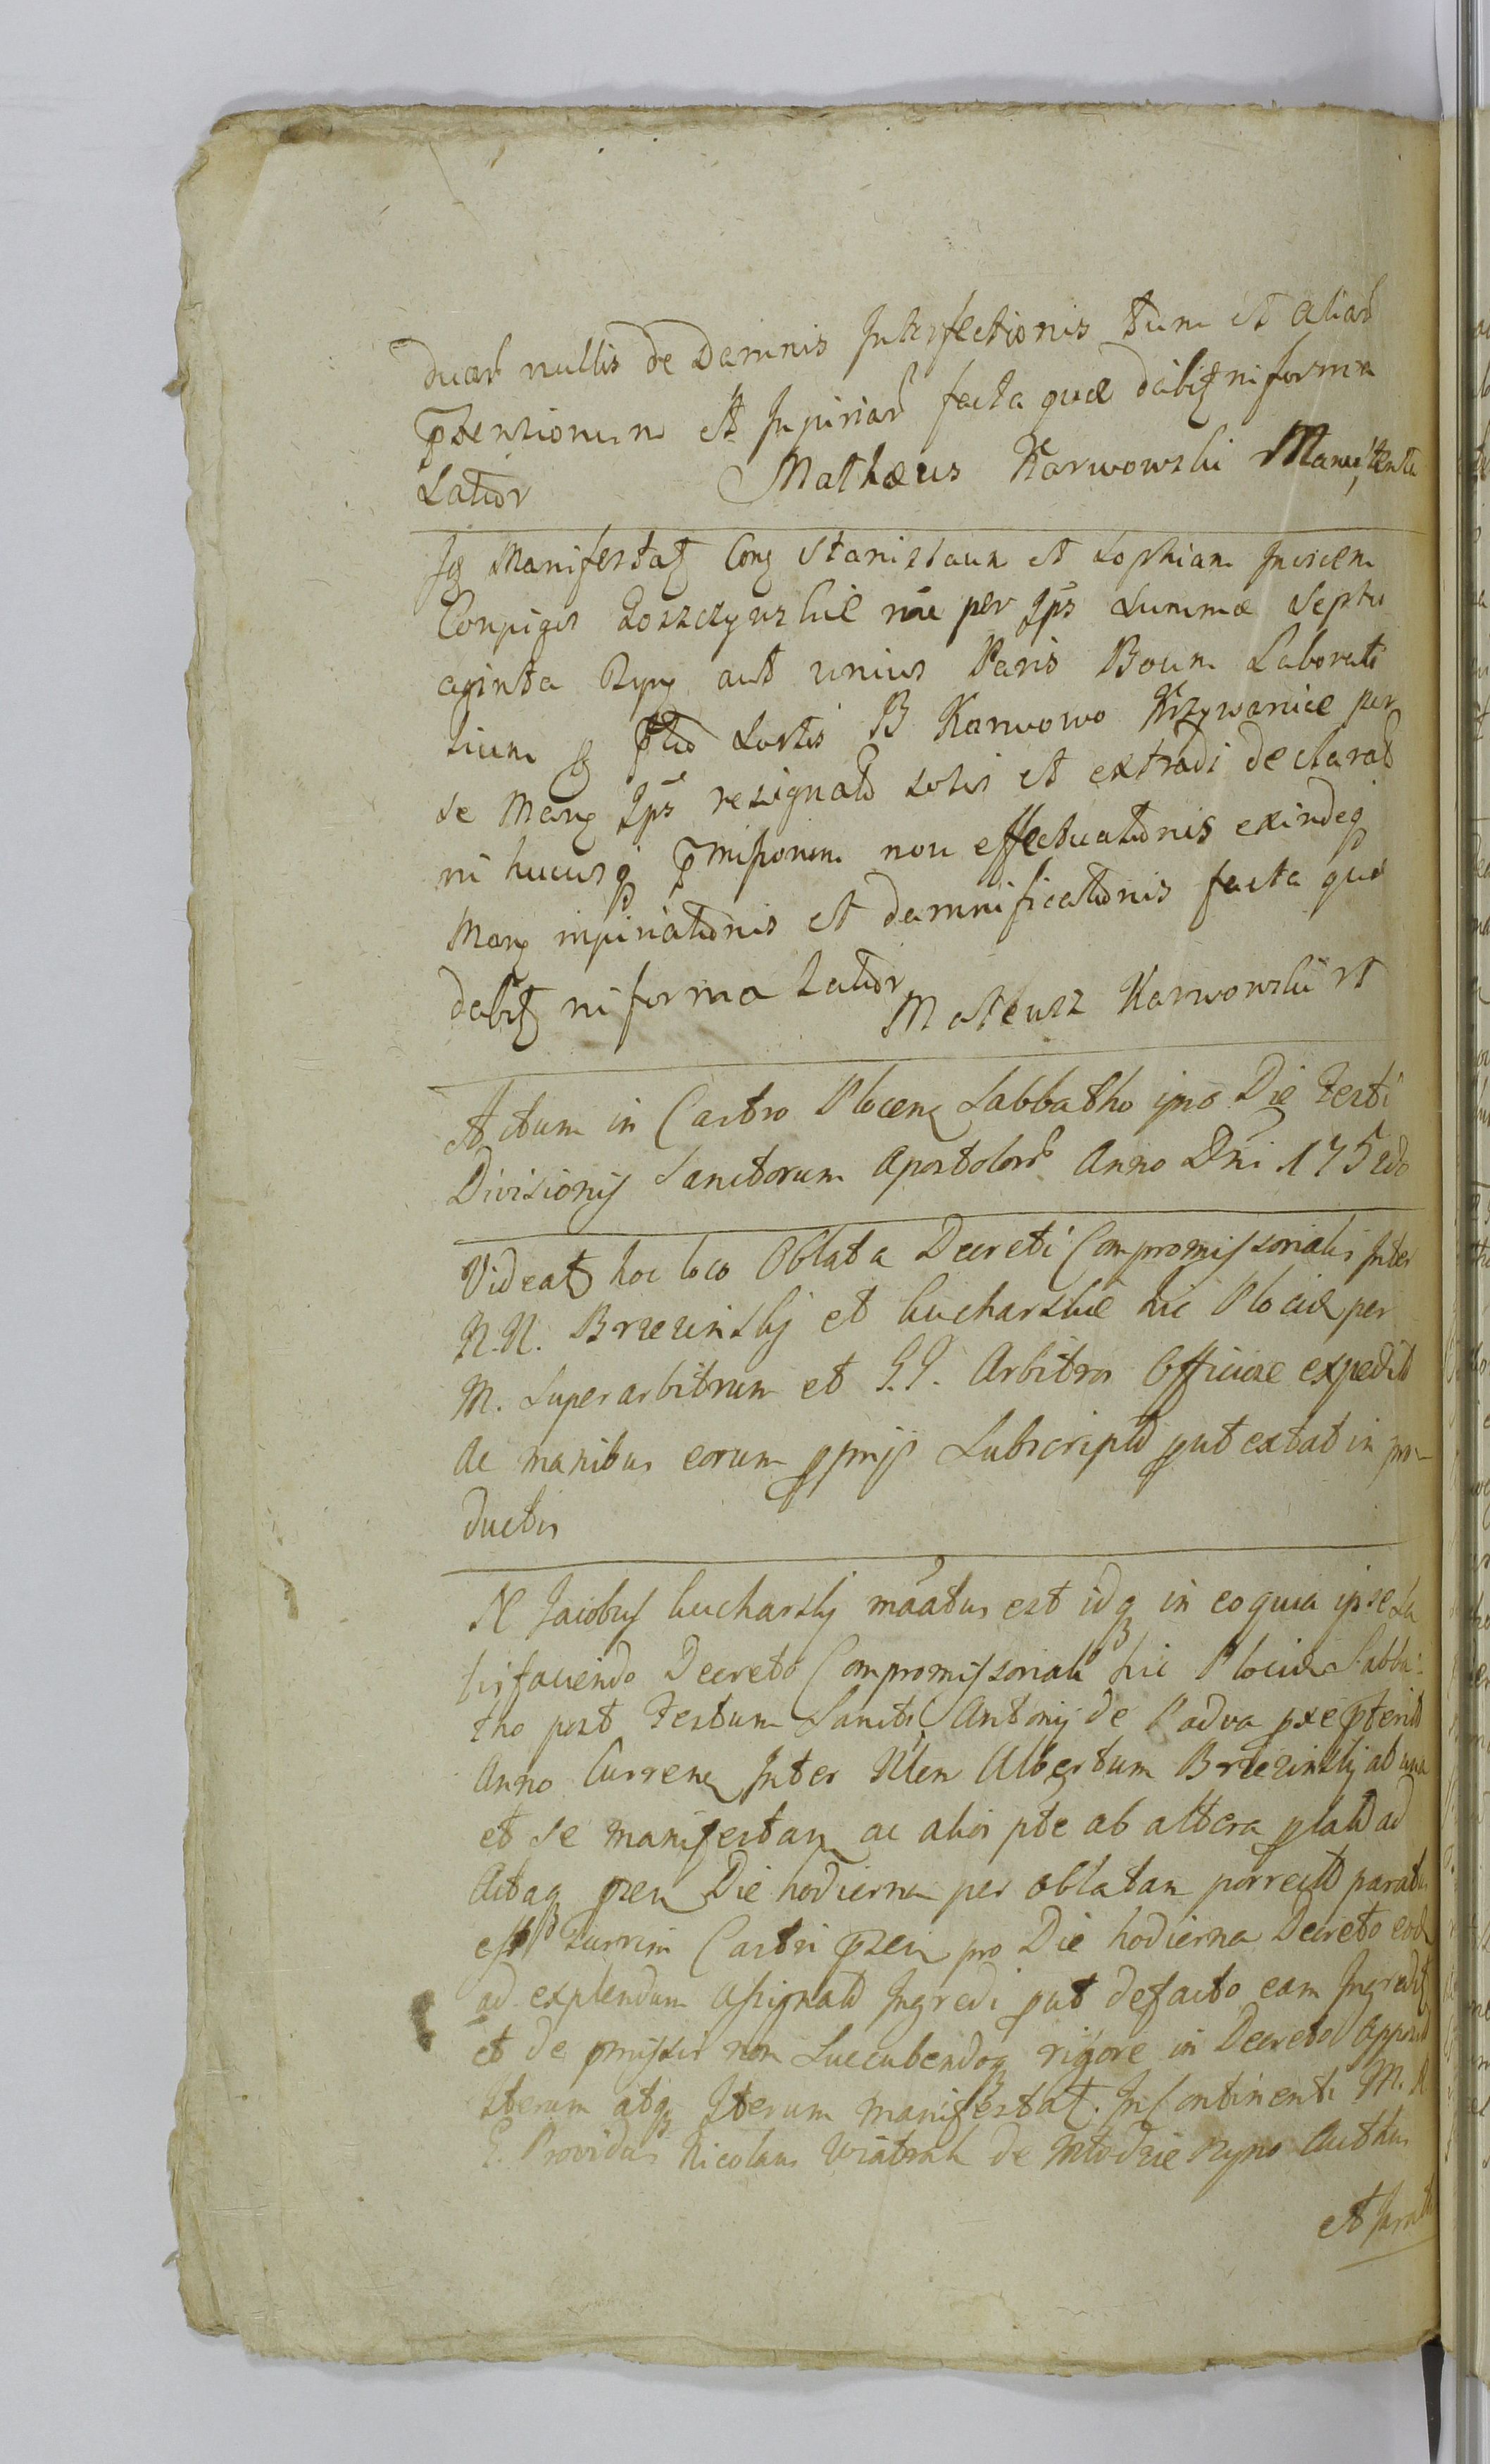 duar nullis de Damnis Interfectionis tum et aliar
ptensionum et Injuriar facta quæ dabit in forma
Latior Mathæus Karwowski
Id Manifestat Con Stanislaum et Sophiam Invicem
Conjuges Goszczynskie per Ips Summæ Septu
aginta aut unius Paris Boum Laborati
lium Sortis B Karwowo Krzywanice per
se Man Ips resignat solvi et extradi declarat
in hucusq pmissorum non effectuationis exindeq
Man injuriationis et damnificationis facta quæ
dabit in forma Latior
Mateusz Karwowski
Actum in Castro Plocen Sabbatho ipso Die Festi
Divisionis Sanctorum Apostolor Anno Dni 1752do
Videat hoc loco Oblata Decreti Compromissorialis Inter
N.N. Brzezinskj et Kucharskie hic Plociæ per
M. Superarbitrum et G.G. Arbitros Officiose expedit
ac manibus eorum pprijs Subscript put extat in pro-
ductis
N Jacobus Kucharskj est idq in eo quia ipse Sa
tisfaciendo Decreto Compromissoriali hic Plociæ Sabba-
tho post Festum Sancti Antonij de Padva
Anno Curren Inter Nlem Albertum Brzezinskj ab una
et se manifestan ac alios pte ab altera plat ad
Actaq pzen Die hodierna per oblatam porrect parat
Turrim Castri pzen pro Die hodierna Decreto eod
ad explendum Assignat Ingredi put defacto eam Ingredit
et de pmissis non Succubendoq rigore in Decreto
Iterum atq Iterum manifestat. In Continenti M. R
G. Providus Nicolaus Wiatrak de Authus
et Jurat